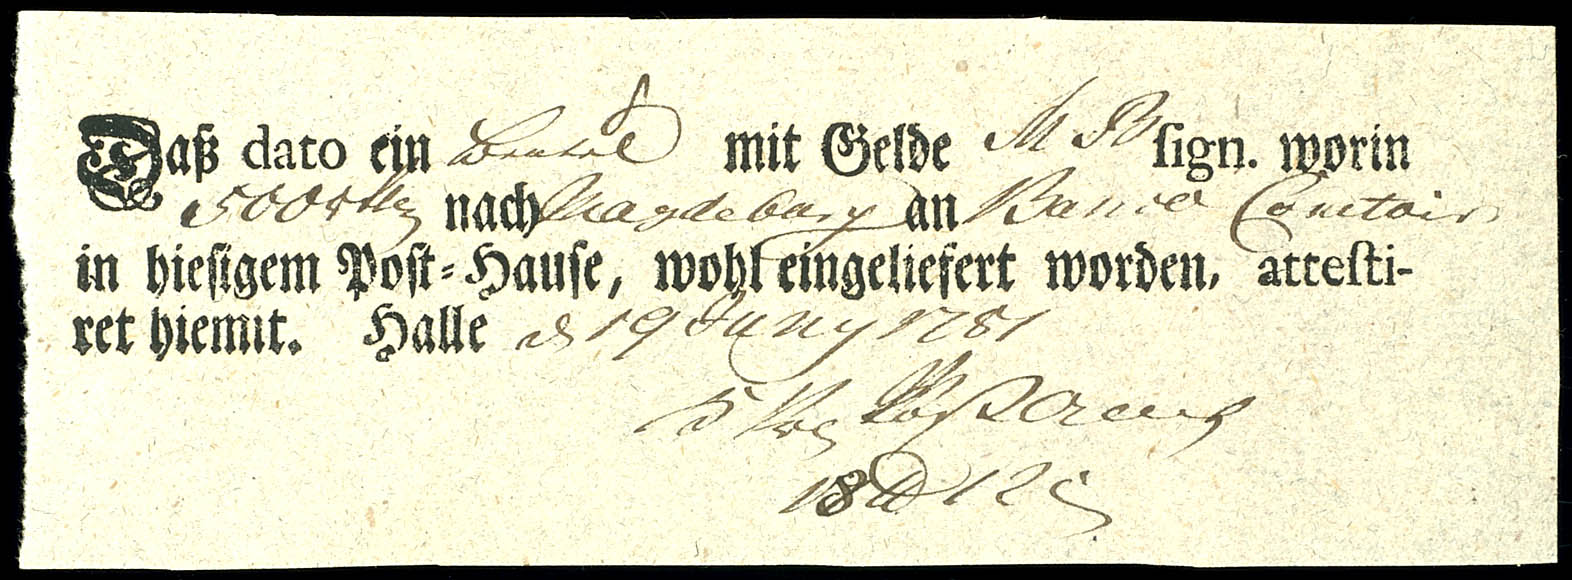 Daß dato ein Beutel mit Gelde M B sign. worin
500 rthl nach Magdeburg an Banco Comtoir
in hiesigem Post-Hause, wohl eingeliefert worden, attesti-
ret hiemit. Halle d 19 Juny 1781
18 12